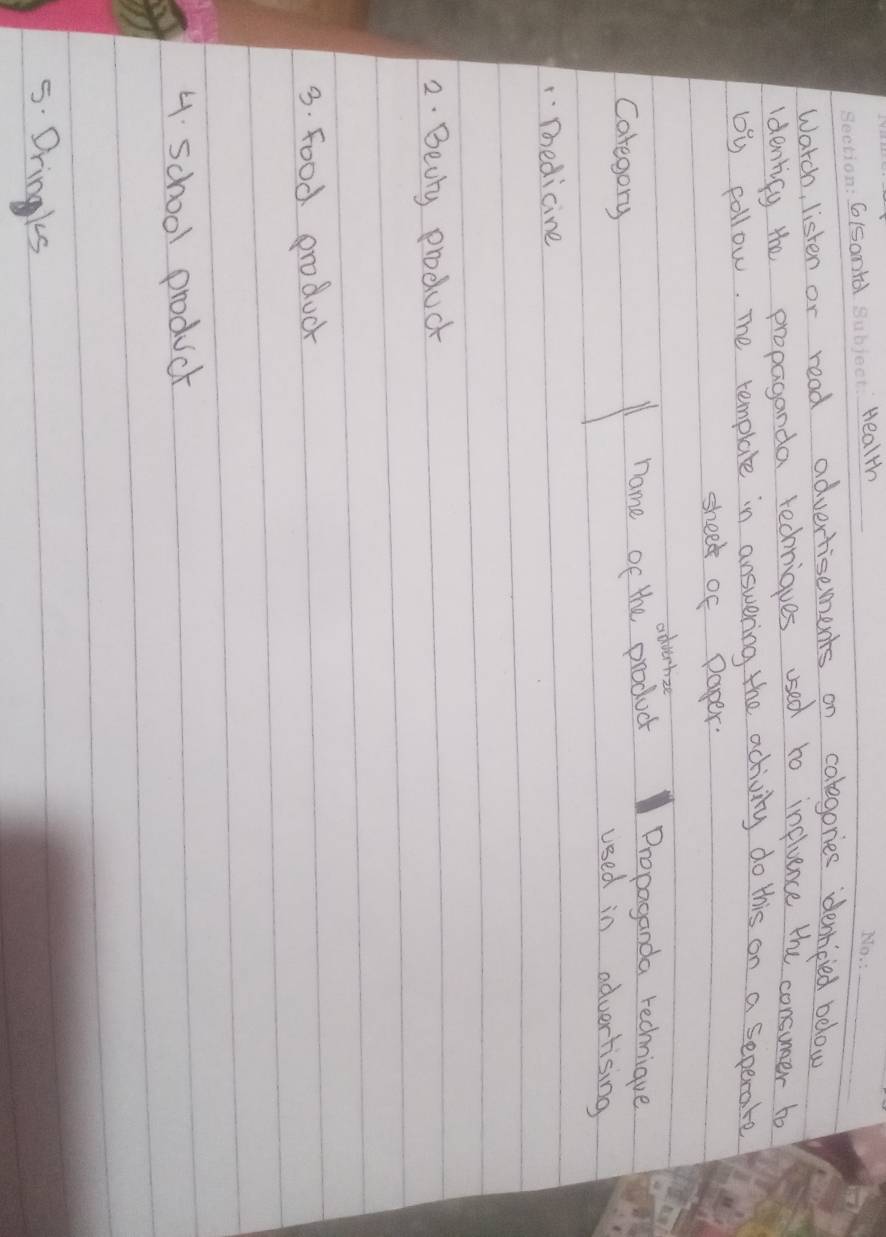 Section: 6/santol Subject: Health No.:
Watch, listen or read advertisements on categories identified below
Identify the propaganda techniques used to influence the consumer to
by follow. The template in answering the activity do this on a seperate
sheet of paper.
Category name of the advertize product Propaganda technique
used in advertising
1. Medicine
2. Beuty product
3. Food product
4. School product
5. Dringks